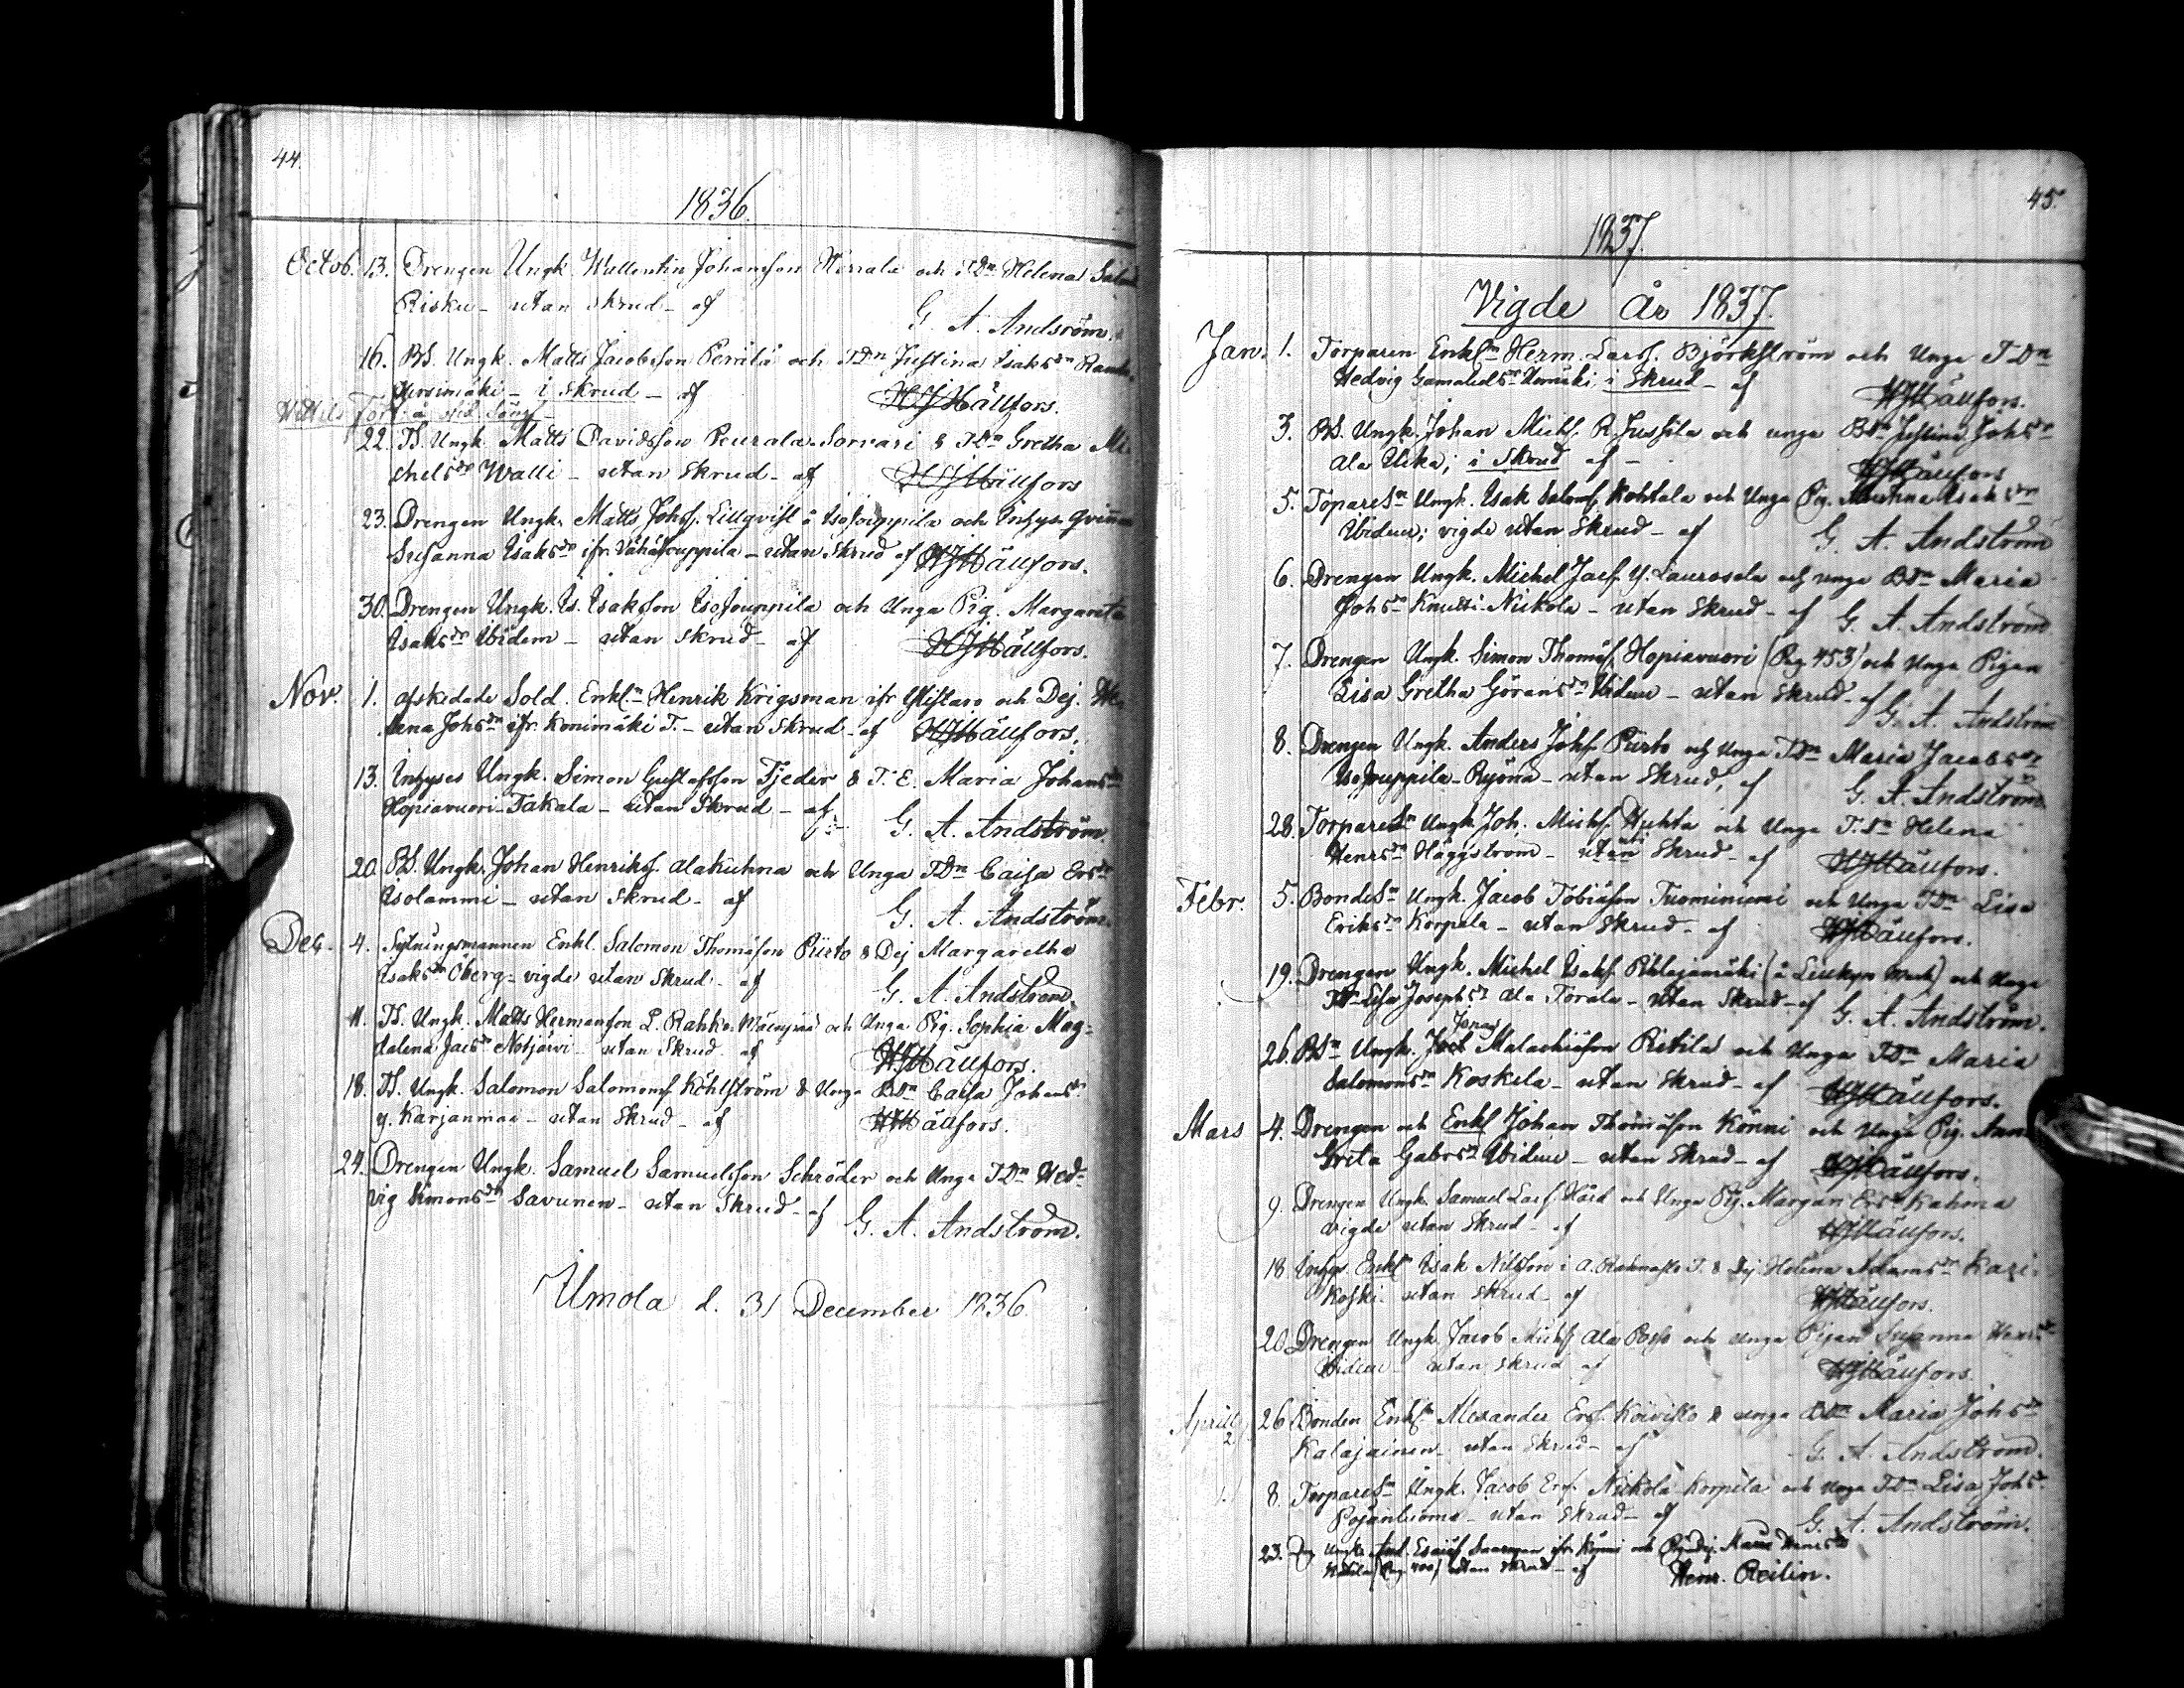 44.
1836.
Octob. 13. Drengen Ungk. Wallentin Johansson Herrala och TDn Helena
Risku - utan skrud - af
G. A. Andström.
16. BS. Ungk. Matts Jacobsson Perttilä och TDn Justina Isaksdr
- i skrud - af HJHällfors.
22. TS. Ungk. Matts Davidsson Peurala-Sorvari & TDn Gretha Mi-
chelsdr Walli - utan skrud - af HJHällfors
23. Drengen Ungk. Matts Johss. Lillqvist å Isojouppila och Inhys. qvinnan
Susanna Isaksdr ifr. Vähäjouppila - utan skrud af HJHällfors.
30. Drengen Ungk. Is. Isaksson Isojouppila och Unga Pig. Margareta
Isaksdr Ibidem - utan skrud - af HJHällfors.
Nov. 1. afskedade Sold. Enkl.n Henrik Krigsman ifr Ylistaro och Dej. He-
lena Johsdr ifr. Konimäki T. - utan skrud - af HJHällfors.
13. Inhyses Ungk. Simon Gustafsson Tjeder & T. E. Maria Johansdr
Hopiavuori-Takala - utan skrud - af G. A. Andström.
20. BS. Ungk. Johan Henrikss. Alakuhna och Unga TDn Caisa Ersdr
Isolammi - utan skrud - af
G. A. Andström.
Dec. 4. Sytningsmannen Enkl. Salomon Thomasson Piirto & Dej Margaretha
Isaksdr Öberg - vigde utan skrud - af
G. A. Andström.
11. TS. Ungk. Matts Hermansson L. Rahko och Unga Pig. Sophia Mag-
dalena Jacsdr Notjärvi - utan skrud - af
HJHällfors.
18. TS. Ungk. Salomon Salomonss Köhlström & Unga BDn Caisa Johansdr
y. Karjanmaa - utan skrud - af HJHällfors.
24. Drengen Ungk. Samuel Samuelsson Schröder och Unga TDn Hed-
vig Simonsdr Savunen - utan skrud - af
G. A. Andström.
Ilmola d. 31 December 1836.
45.
1837.
Vigde År 1837.
Jan. 1. Torparen Enkl.n Herm. Larss. Björkström och Unga TDn
Hedvig Gamalielsdr i skrud - af HJHällfors.
3. BS. Ungk. Johan Michs. R. Jussila och unga BDn Justina Johsdr
Ala Ucka; i skrud af - HJHällfors
5. TorpareSn Ungk. Isak Saloms. Kohtala och Unga Pig. Isaksdr
Ibidem; vigde utan skrud - af
G. A. Andström
6. Drengen Ungk. Michel Jacs. Y. Laurosela och unga BDn Maria
Johsdr Knutti-Niskola - utan skrud - af G. A. Andström
7. Drengen Ungk. Simon Thomass. Hopiavuori (Pag 453) och Unga Pigan
Lisa Gretha Göransdr Ibidem - utan skrud - af
G. A. Andström
8. Drengen Ungk. Anders Johss. Piirto och Unga TDn Maria Jacobsdr
Isojouppila-Ryönä - utan skrud, af
G. A. Andström
28. TorpareSn Ungk. Joh. Michs. Huhta och Unga T.Dn Helena
Henrsdr Häggström - utan skrud - af HJHällfors.
Febr. 5. BondeSn Ungk. Jacob Tobiasson Tuominiemi och Unga TDn Lisa
Eriksdr Korpela - utan skrud - af HJHällfors.
19. Drengen Ungk. Michel Isaks. Pihlajamäki och Unga
TDn Lisa Josephsdr Ala Torala - utan skrud - af G. A. Andström.
Jonas
26. BSn Ungk. Malachiasson Ristilä och Unga TDn Maria
Salomonsdr Koskela - utan skrud - af HJHällfors.
Mars 4. Drengen och Enkl Johan Thomasson Könni och Unga Pig. Anna
Greta Gabrsdr Ibidem - utan skrud - af HJHällfors.
9. Drengen Ungk. Samuel Hård och Unga Pig. Margar. Ersdr Kahma
vigde utan skrud - af HJHällfors.
18. Inhys Enkl Isak Nilsson i A. T. & Dej. Helena Adamsdr Kari-
koski utan skrud - af HJHällfors.
20. Drengen Ungk. Jacob Michs. Ala och unga Pigan Susanna Henrsdr
Ibidem - utan skrud af HJHällfors.
Aprill 2. 26. Bonden Enkl.n Alexander Ers. Koivisto & unga BDn Maria Johsdr
Kalajainen - utan skrud - af G. A. Andström.
8. TorpareSn Ungk. Jacob Ers. Niskola Korpela och Unga TDn Lisa Johsdr
Pojanluoma - utan skrud - af G. A. Andström.
23. Drg Ungk. And. Esaiass. ifr. Könni och Maria Henrsdr
utan skrud - af Henr. Reilin.